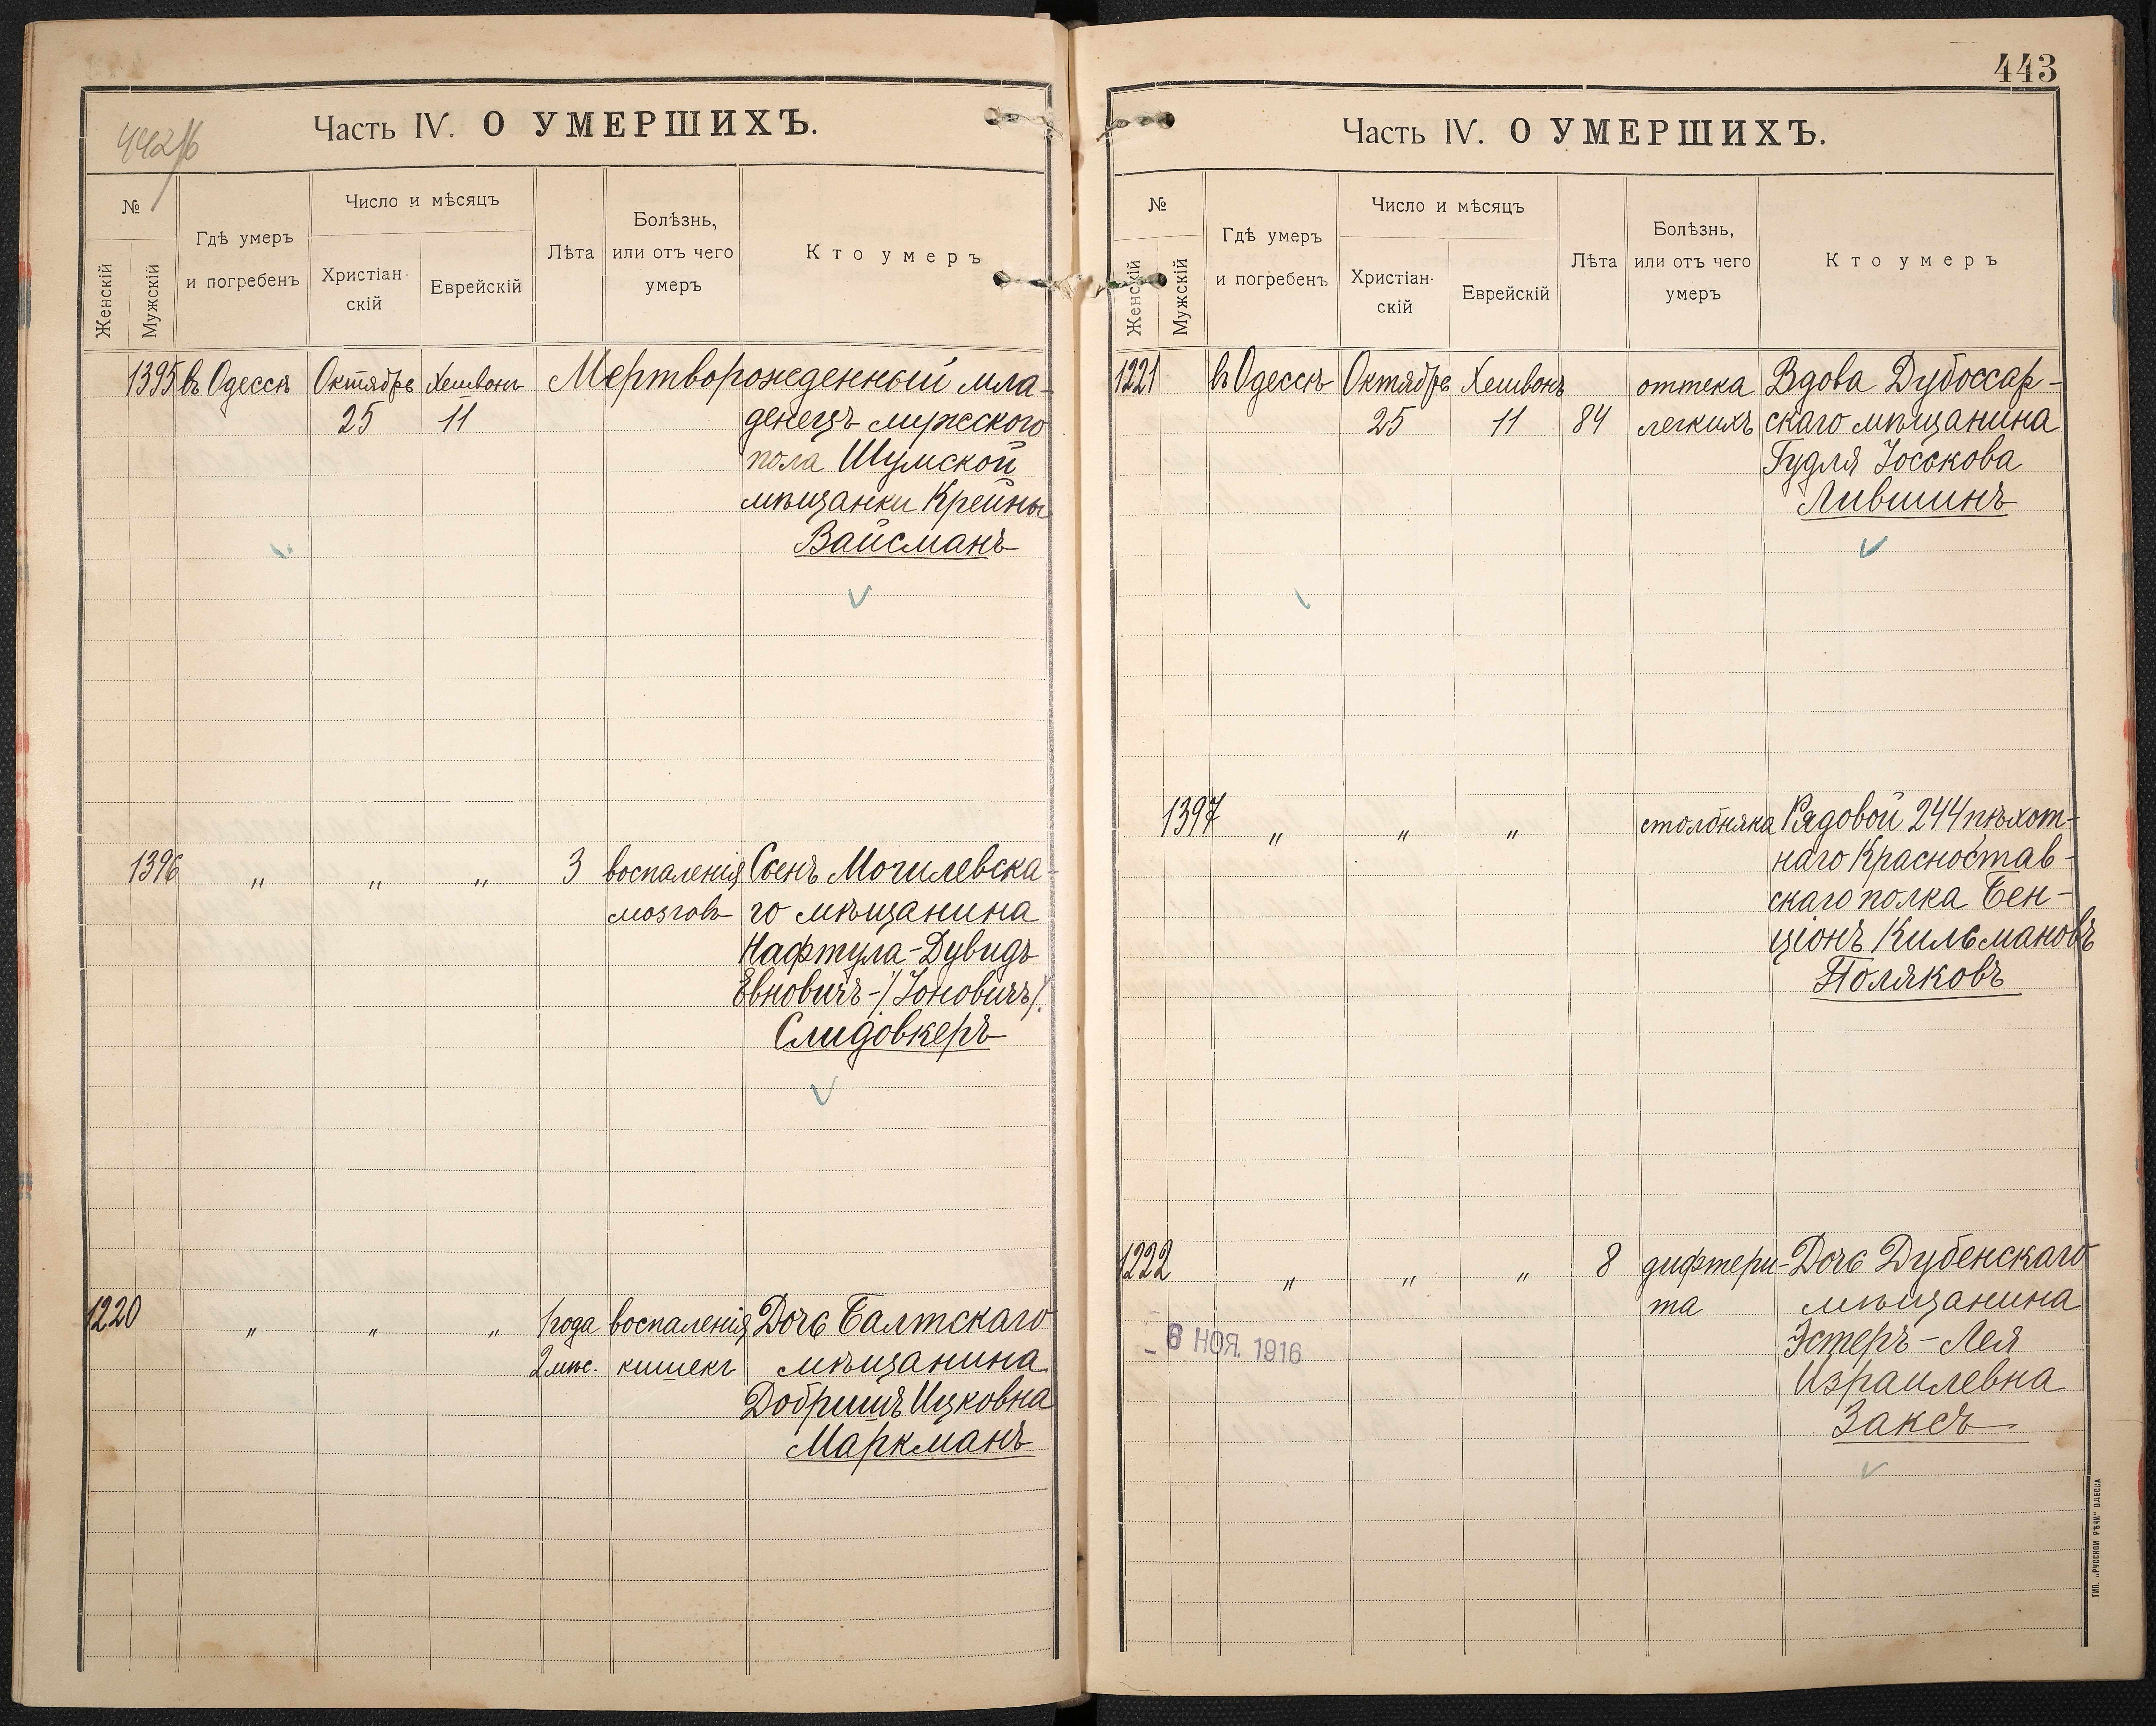 442/б
Часть IV. О УМЕРШИХЪ.
№
Женскій
Мужскій
Гдѣ умеръ
и погребенъ
Число и мѣсяцъ
Христіан-
скій
Еврейскій
Лѣта
Болѣзнь,
или отъ чего
умеръ
Кто умеръ
1395 въ Одессѣ Октябрь Хешвонъ Мертворожденный мла-
25 11 денецъ мужского
пола Шумской
мѣщанки Крейны
Вайсманъ
1396 " " " 3 воспаленія Сынъ Могилевска-
мозговъ го мѣщанина
Нафтула-Дувидъ
Евновичъ-/Іоновичъ/
Слидовкеръ
1220 " " " 1 года воспаленія Дочь Балтскаго
2 мѣс. кишекъ мѣщанина
Добришъ Ицковна
Маркманъ
443
Часть IV. О УМЕРШИХЪ.
№
Женскій
Мужскій
Гдѣ умеръ
и погребенъ
Число и мѣсяцъ
Христіан-
скій
Еврейскій
Лѣта
Болѣзнь,
или отъ чего
умеръ
Кто умеръ
1221 въ Одессѣ Октябрь Хешвонъ оттека Вдова Дубоссар-
25 11 84 легкихъ скаго мѣщанина
Гудля Іоськова
Лившинъ
1397 " " " столбняка Рядовой 244 пѣхот-
наго Красностав-
скаго полка Бен-
ціонъ Кильмановъ
Поляковъ
1222 " " " 8 дифтери- Дочь Дубенскаго
та мѣщанина
Эстеръ-Лея
Израилевна
Заксъ
- 6 НОЯ. 1916
ТИП. „РУССКОЙ РѢЧИ" ОДЕССА